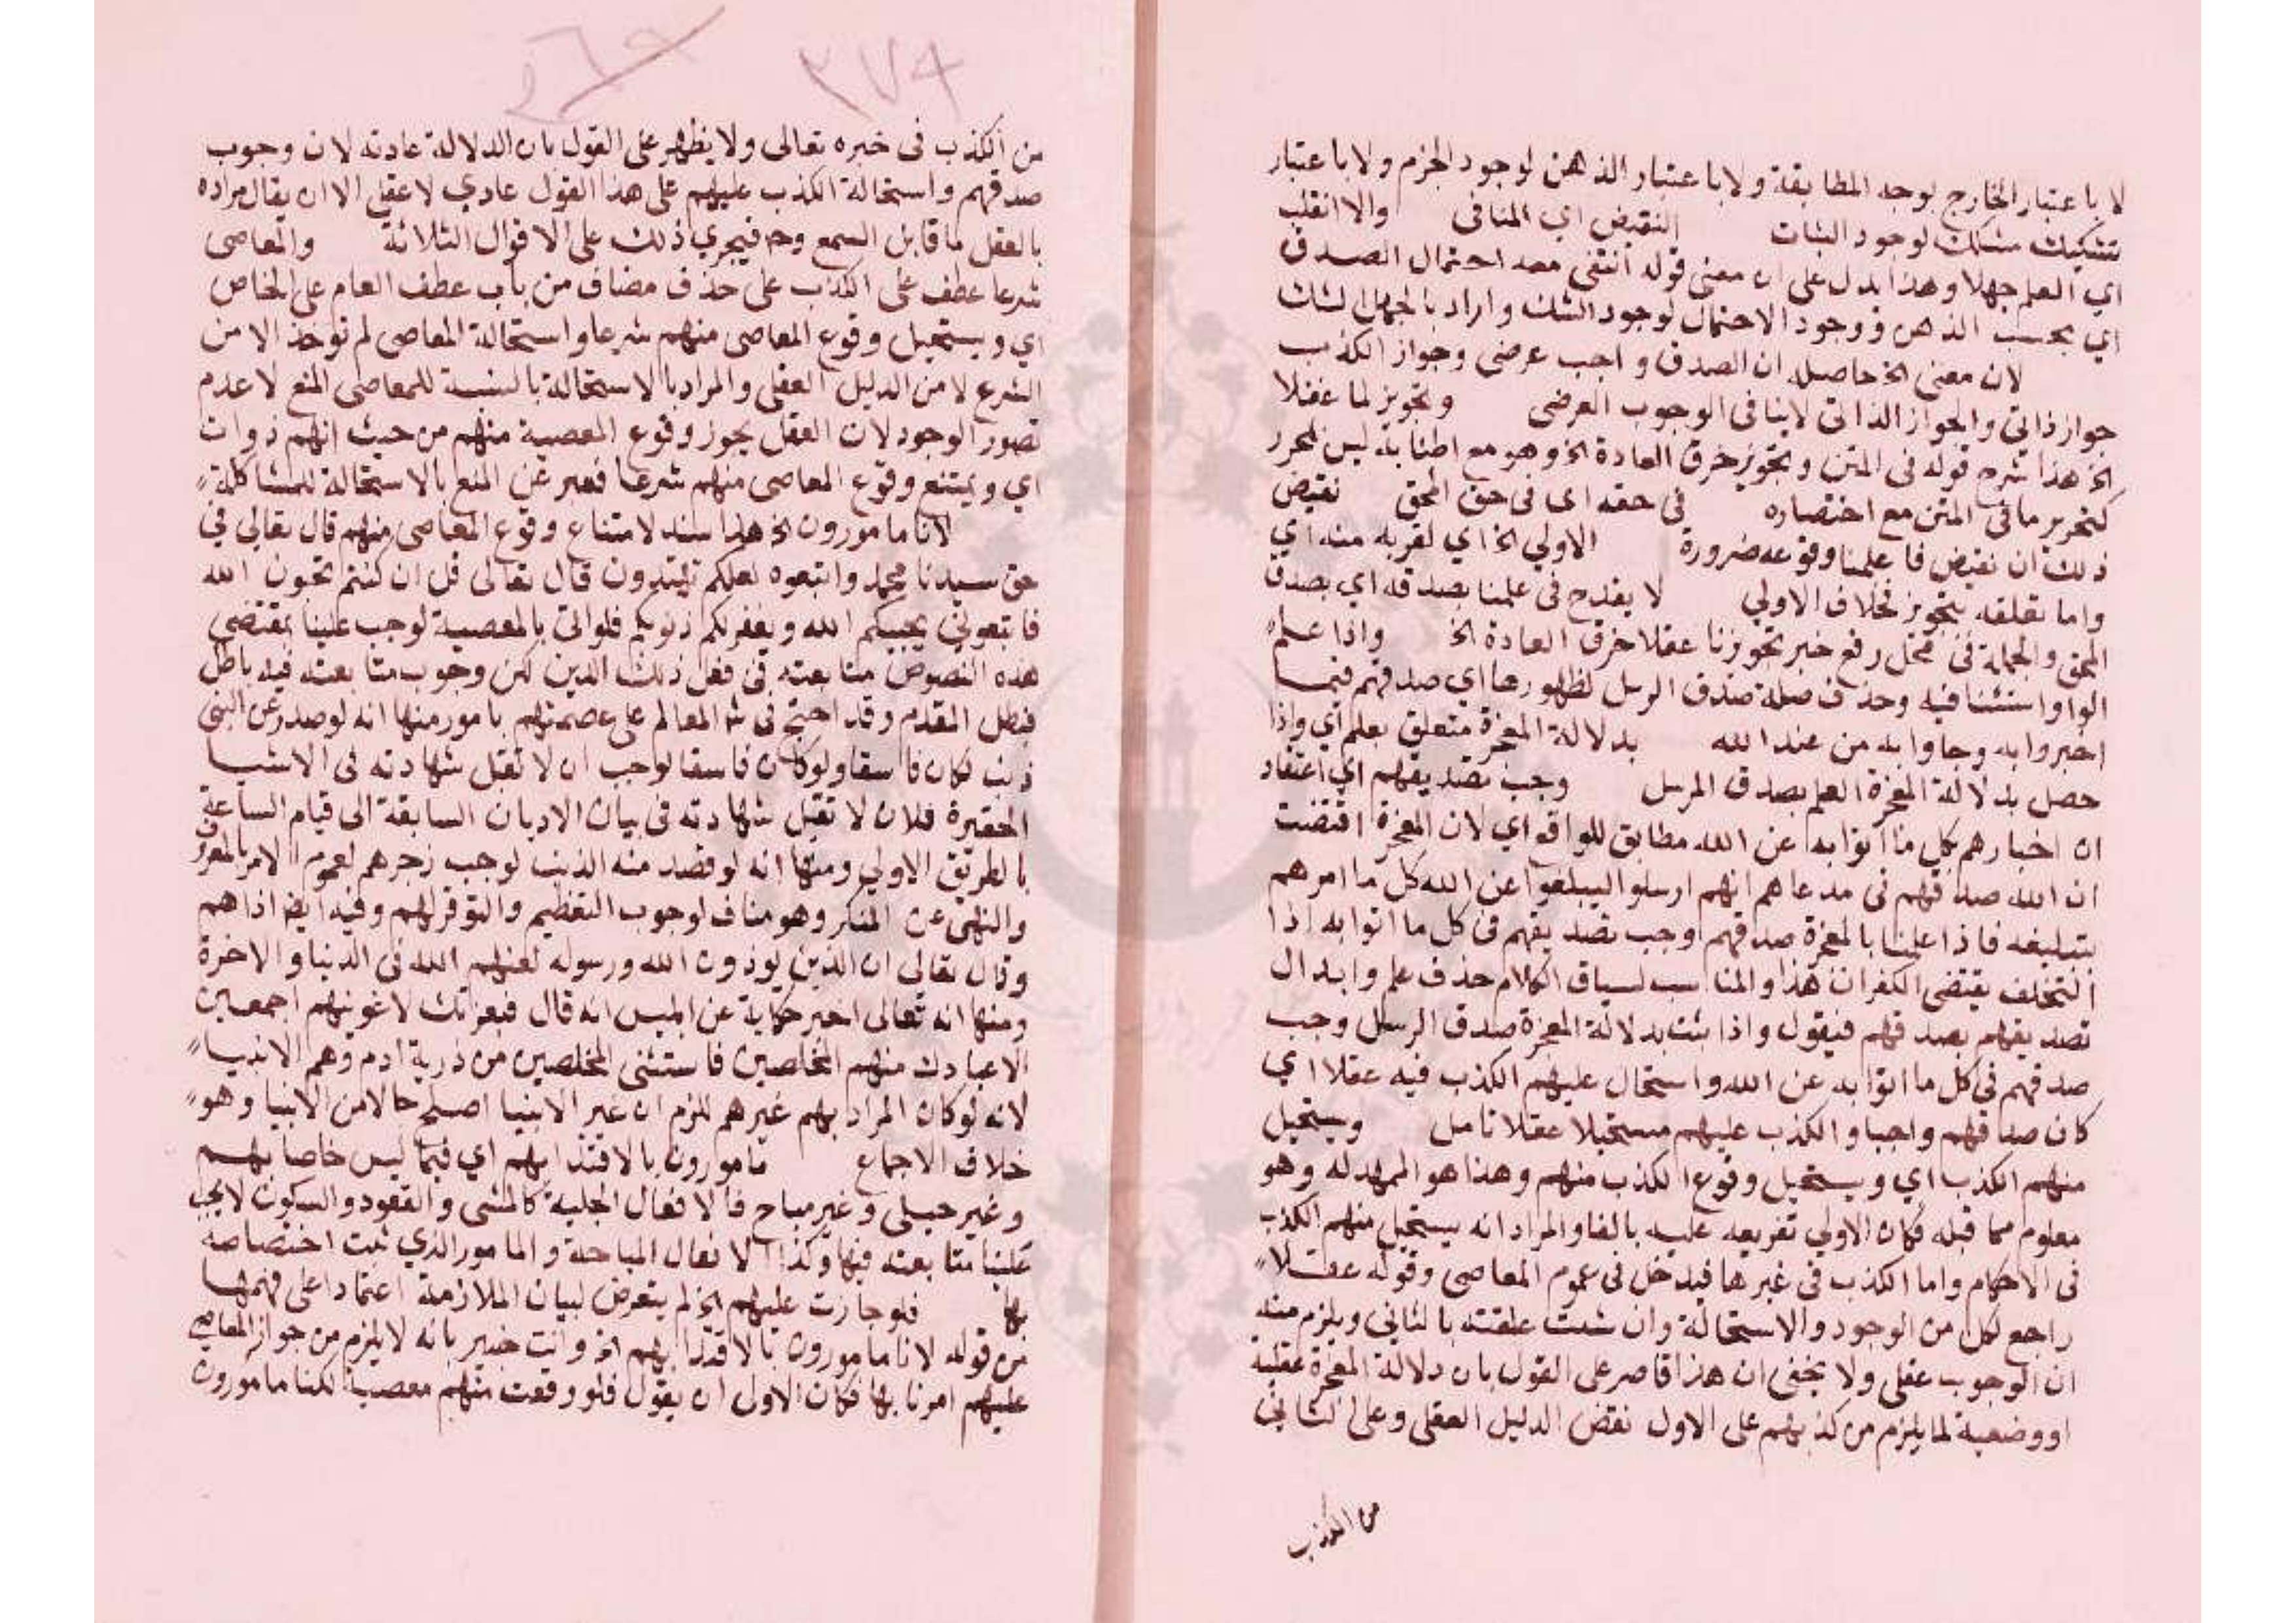 لا باعتبار الخارج لوجه المطابقة ولا باعتبار الذهن لوجود الجزم ولا باعتبار
تشكيك مشكك لوجود الثبات النقيض اي المنافى والا انقلب
اي العلم جهلا وهذا يدل على ان معنى قوله انتفى معه احتمال الصدق
اي بحسب الذهن ووجود الاحتمال لوجود الشك واراد بالجهل الشك
لان معنى الخ حاصله ان الصدق واجب عرضى وجواز الكذب
جواز ذاتي والجواز الذاتي لا ينافى الوجوب العرضى وتجويز لما عقلا
الخ هذا شرح قوله فى المتن وتجويز خرق العادة الخ وهو مع اطنابه ليس محرر
كتحرير ما فى المتن مع اختصاره فى حقه اى فى حق المحق نقيض
ذلك ان نقيض فا علمنا وقوعه ضرورة الاولي الخ اي لقربه منه اي
واما تعلقه بتجويز فخلاف الاولي لا يقدح فى علمنا بصدقه اي بصدق
المحق والجملة فى محل رفع خبر تجويزنا عقلا خرق العادة الخ واذا علم
الواو استئنافيه وحذف صلة صدق الرسل لظهورها اي صدقهم فيما
اخبروا به وجاوا به من عند الله بدلالة المعجزة متعلق بعلم اي واذا
حصل بدلالة المعجزة العلم بصدق المرسل وجب تصديقهم اي اعتقاد
ان اخبارهم بكل ما اتوا به عن الله مطابق للواقع اي لان المعجزة اقتضت
ان الله صدقهم فى مدعاهم انهم ارسلوا ليبلغوا عن الله كل ما امرهم
بتبليغه فاذا علمنا بالمعجزة صدقهم وجب تصديقهم فى كل ما اتوا به اذا
التخلف يقتضى الكفران هذا والمناسب لسياق الكلام حذف علم وابدال
تصديقهم بصدقهم فيقول واذا ثبت بدلالة المعجزة صدق الرسل وجب
صدقهم فى كل ما اتوا به عن الله واستحال عليهم الكذب فيه عقلا اي
كان صدقهم واجبا والكذب عليهم مستحيلا عقلا تامل ويستحيل
منهم الكذب اي ويستحيل وقوع الكذب منهم وهذا هو الممهد له وهو
معلوم مما قبله فكان الاولي تفريعه عليه بالفا والمراد انه يستحيل منهم الكذب
فى الاحكام واما الكذب فى غيرها فيدخل فى عموم المعاصى وقوله عقلا
راجع لكل من الوجود والاستحالة وان شئت علقته بالثاني ويلزم منه
ان الوجوب عقلى ولا يخفى ان هذا قاصر على القول بان دلالة المعجزة عقلية
او وضعية لما يلزم من كذبهم على الاول نقض الدليل العقلى وعلى الثاني
من الكذب
٣٧٩
من الكذب فى خبره تعالى ولا يظهر على القول بان الدلالة عادته لان وجوب
صدقهم واستحالة الكذب عليهم على هذا القول عادي لا عقلى الا ان يقال مراده
بالعقل ما قابل السمع وح فيجري ذلك على الاقوال الثلاثة والمعاصى
شرعا عطف على الكذب على حذف مضاف من باب عطف العام على الخاص
اي ويستحيل وقوع المعاصى منهم شرعا واستحالة المعاصى لم توخذ الا من
الشرع لا من الدليل العقلى والمراد بالاستحالة بالنسبة للمعاصى المنع لا عدم
تصور الوجود لان العقل يجوز وقوع المعصية منهم من حيث انهم ذوات
اي ويمتنع وقوع المعاصى منهم شرعا فعبر عن المنع بالاستحالة للمشاكلة
لانا مامورون الخ هذا سند لامتناع وقوع المعاصى منهم قال تعالي في
حق سيدنا محمد واتبعوه لعلكم تهتدون قال تعالى قل ان كنتم تحبون الله
فاتبعوني يحببكم الله ويغفر لكم ذنوبكم فلو اتى بالمعصية لوجب علينا بمقتضى
هذه النصوص متابعته فى فعل ذلك الذنب لكن وجوب متابعته فيه باطل
فبطل المقدم وقد احتج فى ش المعالم على عصمتهم بامور منها انه لو صدر عن النبى
ذنب لكان فاسقا ولو كان فاسقا لوجب ان لا تقبل شهادته فى الاشيا
الحقيرة فلان لا تقبل شهادته فى بيان الاديان السابقة الى قيام الساعة
بالطريق الاولي ومنها انه لو قصد منه الذنب لوجب زجرهم لعموم الامر بالمعروف
والنهى عن المنكر وهو مناف لوجوب التعظيم والتوقر لهم وفيه ايض اذاهم
وقال تعالى ان الذين يوذون الله ورسوله لعنهم الله فى الدنيا والاخرة
ومنها انه تعالى اخبر حكاية عن ابليس انه قال فبعزتك لاغوينهم اجمعين
الا عبادك منهم المخلصين فاستثنى المخلصين من ذرية ادم وهم الانبيا
لانه لو كان المراد بهم غيرهم للزم ان غير الانبيا اصلح حالا من الانبيا وهو
خلاف الاجماع مامورون بالاقتدا بهم اي فيما ليس خاصا بهم
وغير جبلى وغير مباح فالافعال الجلية كالمشى والقعود والسكون لا يجب
علينا متابعته فيها وكذا الافعال المباحة والمامور الذي ثبت اختصاصه
بها فلو جازت عليهم الخ لم يتعرض لبيان الملازمة اعتمادا على فهمها
من قوله لانا مامورون بالاقتدا بهم الخ وانت خبير بانه لا يلزم من جواز المعاصي
عليهم امرنا بها فكان الاولى ان يقول فلو وقعت منهم معصية لكنا مامورون